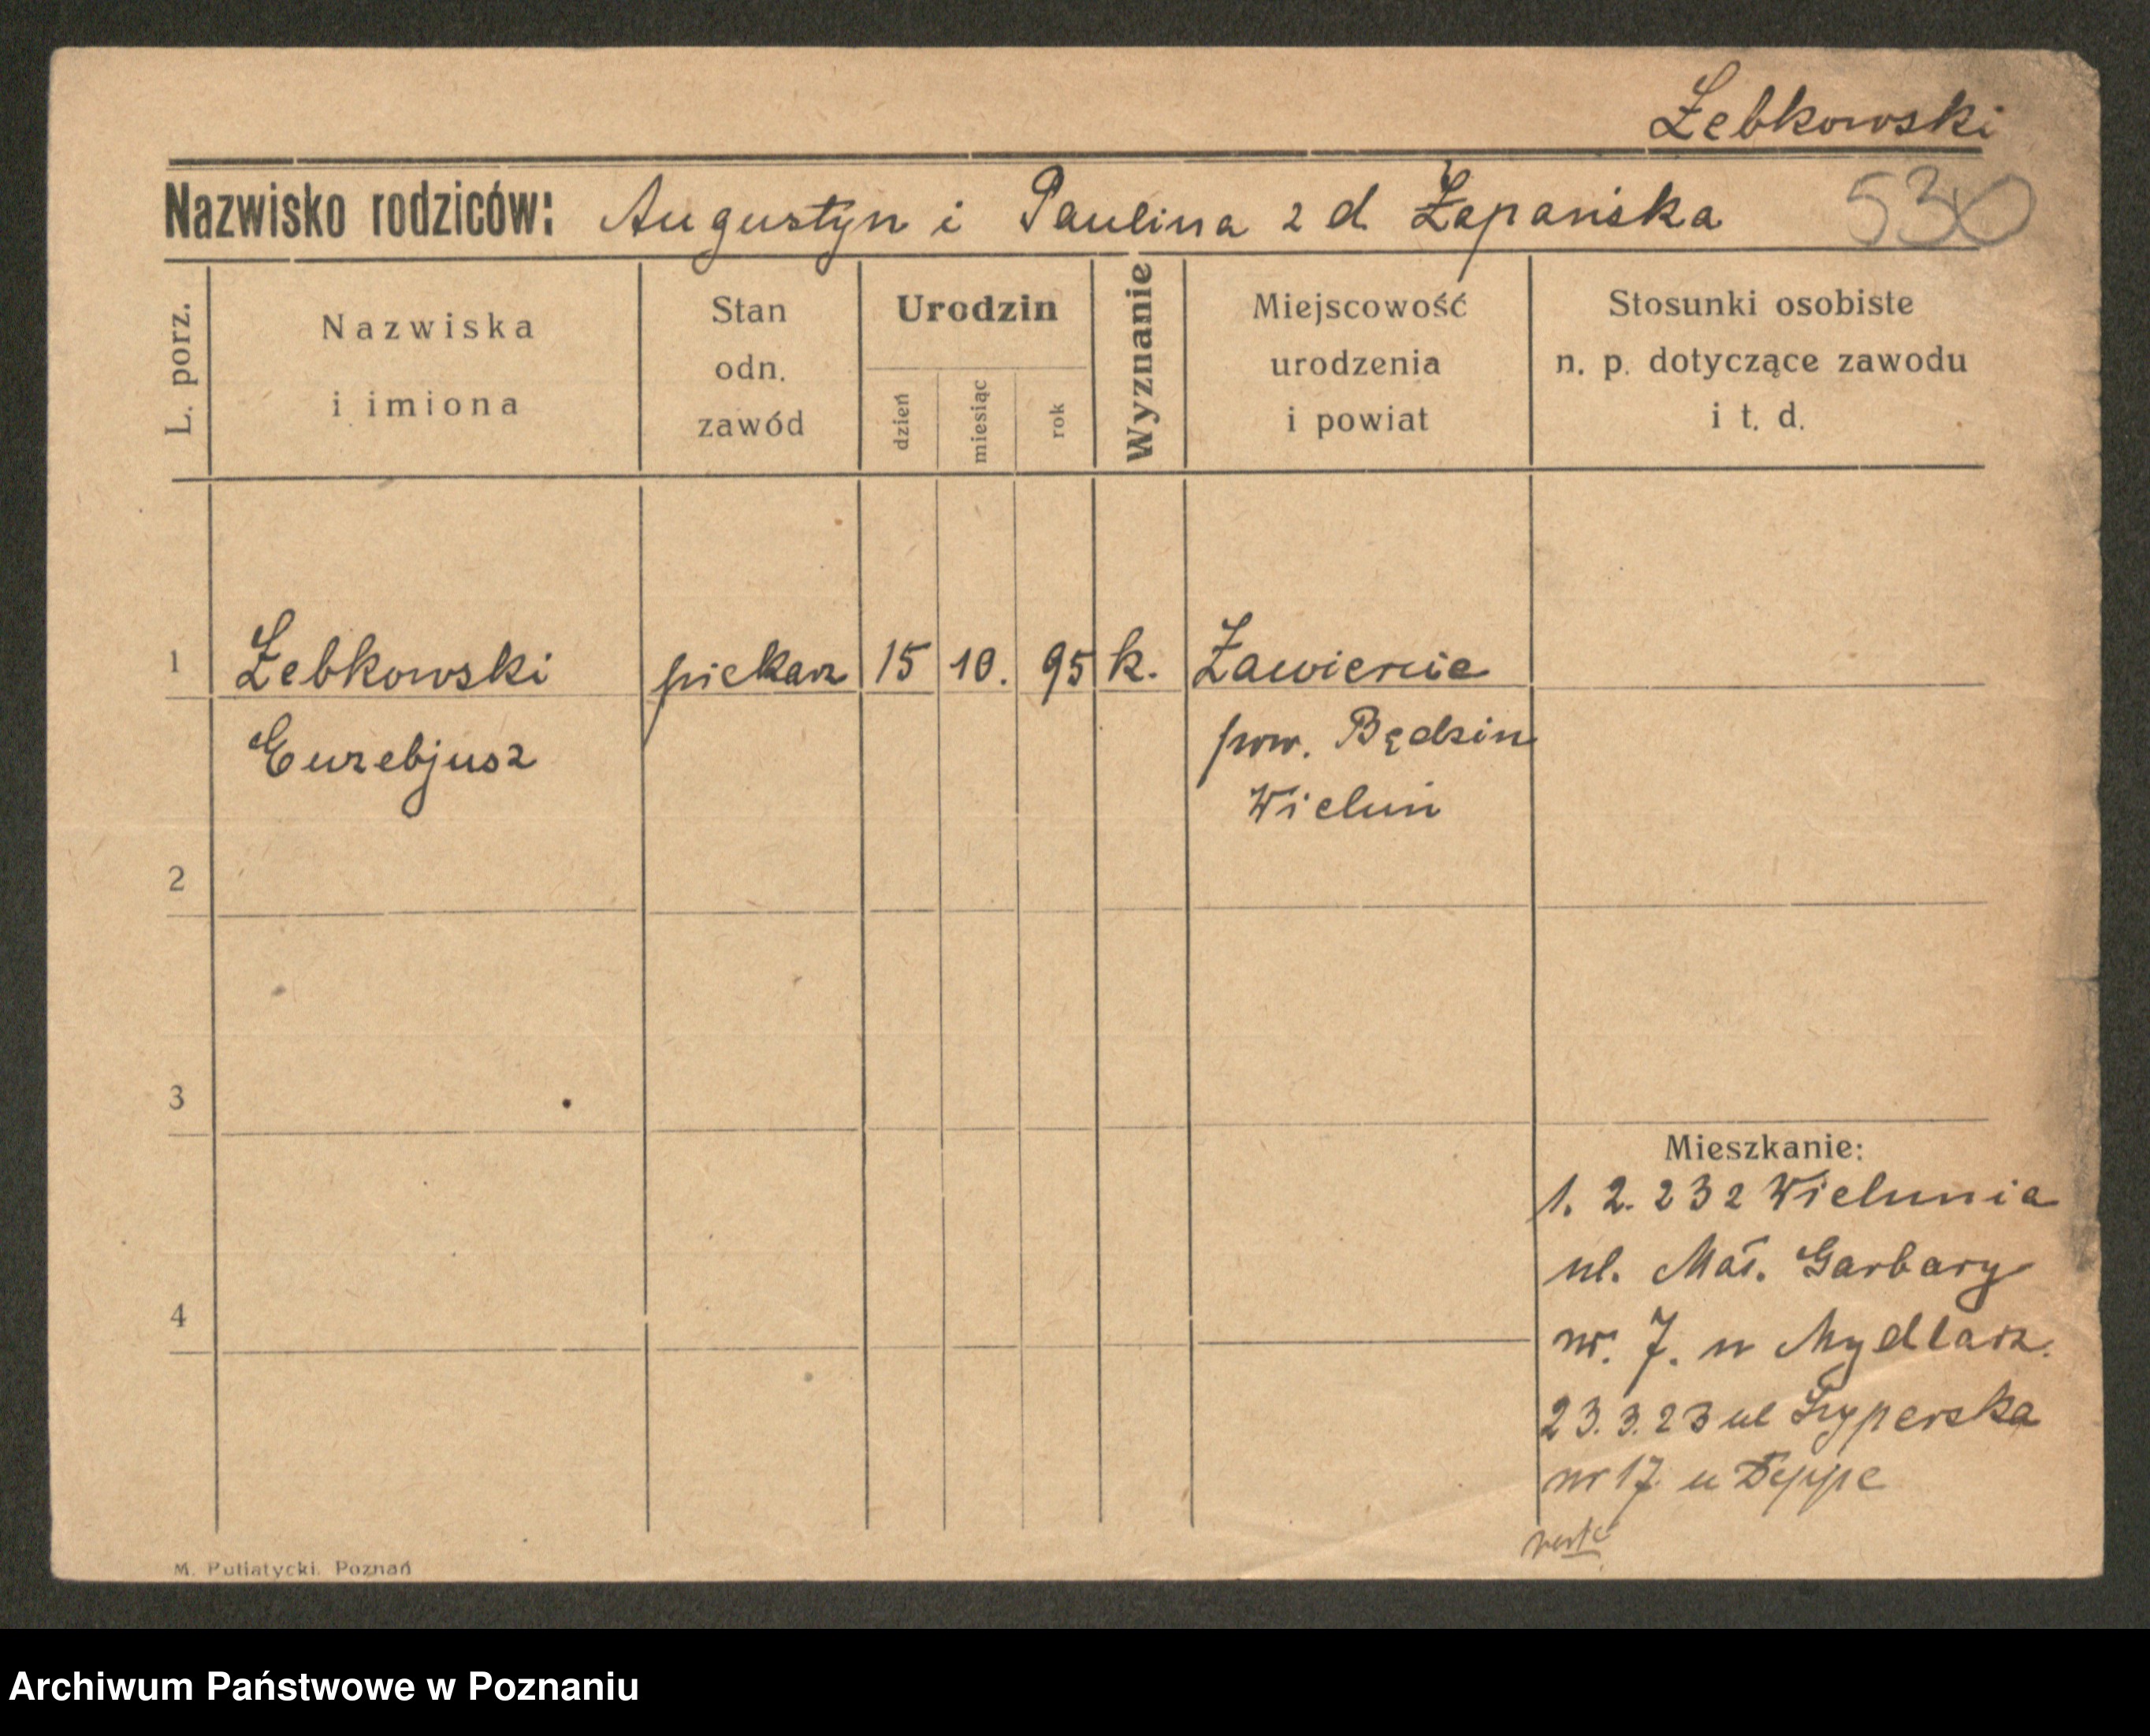 Żebkowski
Nazwisko rodziców: Augustyn i Paulina z d. Żapańska
530
L. porz.
Nazwiska
i imiona
Stan
odn.
zawód
Urodzin
dzień
miesiąc
rok
Wyznanie
Miejscowość
urodzenia
i powiat
Stosunki osobiste
n. p. dotyczące zawodu
i t. d.
1 Żebkowski piekarz 15 10. 95 k. Zawiercie
Euzebjusz pow. Będzin
Wieluń
2
3
4
Mieszkanie:
1. 2. 23 z Wielunia
ul. Mał. Garbary
nr. 7. u Mydlarz.
23. 3. 23 ul
nr 17 u Deppe
M. Putiatycki, Poznań
Archiwum Państwowe w Poznaniu